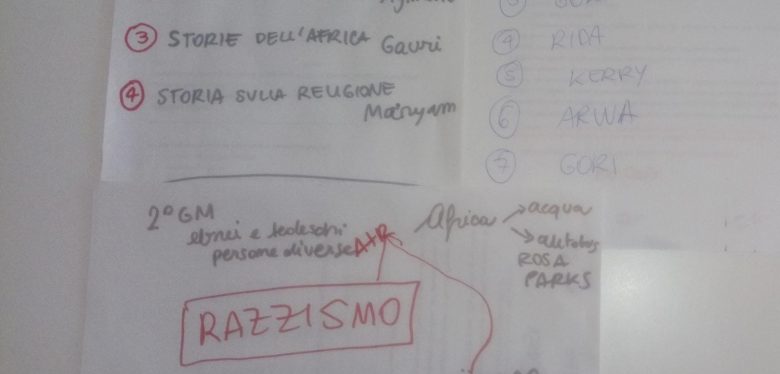 ③ STORIE DELL'AFRICA Gauri
④ STORIA SULLA RELIGIONE
Maryam
④ RIDA
⑤ KERRY
⑥ ARWA
⑦ GORI
2° GM
ebrei e tedeschi
persone diverse A+R
Africa → acqua
→ autobus
ROSA
PARKS
RAZZISMO